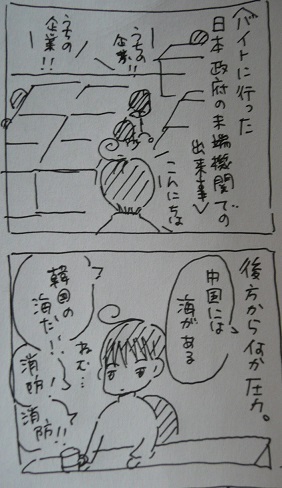 バイトに行った
日本政府の末端機関での
出来事↓
うちの
企業!!
うちの
企業!!
こんにちは
後方から何か圧力。
中国には
海がある
ねむ…
韓国の
海だ!!
消防!!
消防!!